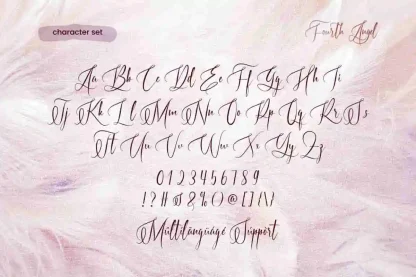 character set
Fourth Angel
Aa Bb Cc Dd Ee Ff Gg Hh Ii
Jj Kk Ll Mm Nn Oo Pp Qq Rr Ss
Tt Uu Vv Ww Xx Yy Zz
0123456789
!?#$&%()@[]{\}
Multilanguage Support